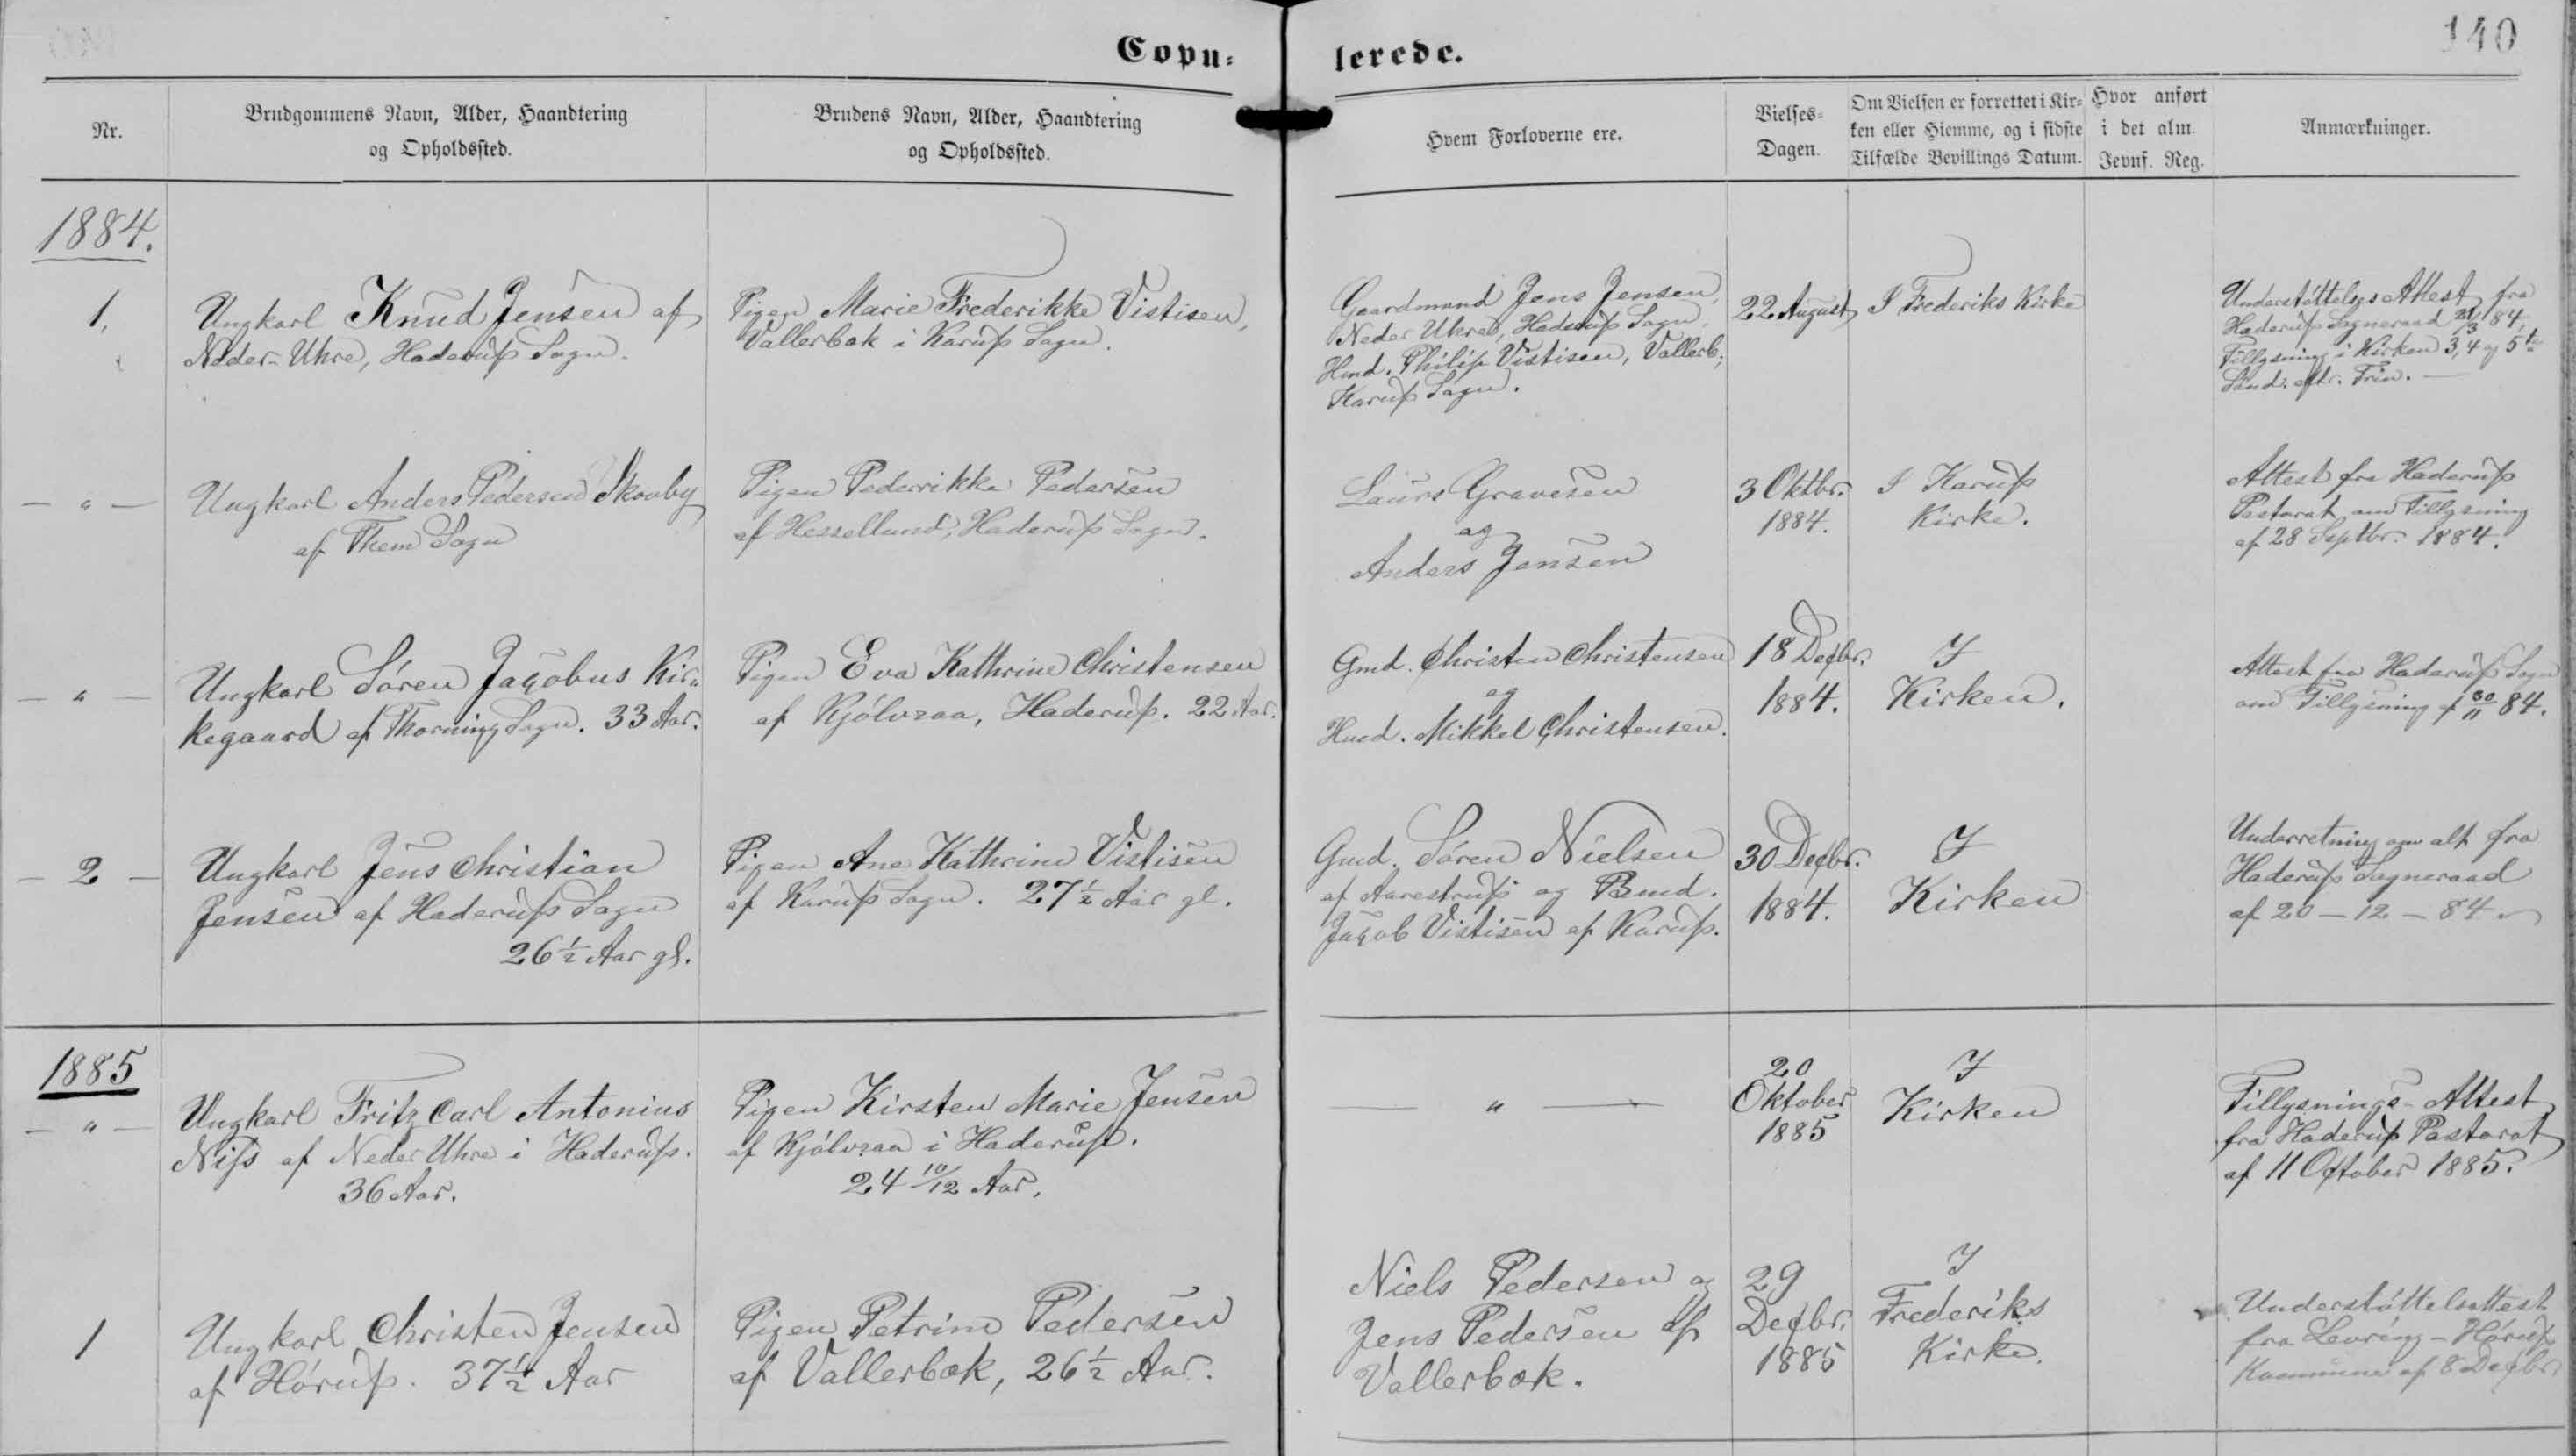 Copu-
lerede.
140
Nr.
Brudgommens Navn, Alder, Haandtering
og Opholdssted.
Brudens Navn, Alder, Haandtering
og Opholdssted.
Hvem Forloverne ere.
Vielses-
Dagen.
Om Vielsen er forrettet i Kir-
ken eller Hiemme, og i sidste
Tilfælde Bevillings Datum.
Hvor anført
i det alm.
Jevnf. Reg.
Anmærkninger.
1884.
1.
Ungkarl Knud Jensen af
Neder-Uhre, Haderup Sogn.
Pigen Marie Frederikke Vistisen,
Vallerbæk i Karup Sogn.
Gaardmand Jens Jensen,
Neder Uhre, Haderup Sogn.
Hmd. Philip Vistisen, Vallerb.,
Karup Sogn.
22 August
I Frederiks Kirke
Understøttelses Attest fra
Haderup Sogneraad 84,
Tillysning i Kirken 3, 4 og 5te
Sønd. eftr. Trin. —
— " —
Ungkarl Anders Pedersen Skovby
af Them Sogn
Pigen Pederrikke Pedersen
af Hessellund, Haderup Sogn.
Laurs Gravesen
og
Anders Jensen
3 Oktbr.
1884.
I Karup
Kirke.
Attest fra Haderup
Pastorat om Tillysning
af 28 Septbr. 1884.
— " —
Ungkarl Søren Jacobus Kir-
kegaard af Thorning Sogn. 33 Aar.
Pigen Eva Kathrine Christensen
af Kjølvraa, Haderup. 22 Aar.
Gmd. Christen Christensen
og
Hmd. Mikkel Christensen.
18 Decbr.
1884.
I
Kirken.
Attest fra Haderup Sogn
om Tillysning af 30/11 84.
— 2 —
Ungkarl Jens Christian
Jensen af Haderup Sogn
26½ Aar gl.
Pigen Ane Kathrine Vistisen
af Karup Sogn. 27½ Aar gl.
Gmd. Søren Nielsen
af Aarestrup og Bmd.
Jacob Vistisen af Karup.
30 Decbr.
1884.
I
Kirken
Underretning om alt fra
Haderup Sogneraad
af 20 - 12 - 84
1885
— " —
Ungkarl Fritz Carl Antonius
Niss af Neder Uhre i Haderup.
36 Aar.
Pigen Kirsten Marie Jensen
af Kjølvraa i Haderup.
24 10/12 Aar.
— " —
20
Oktober
1885
I
Kirken
Tillysnings-Attest
fra Haderup Pastorat
af 11 October 1885.
1
Ungkarl Christen Jensen
af Hørup. 37½ Aar
Pigen Petrine Pedersen
af Vallerbæk, 26½ Aar.
Niels Pedersen og
Jens Pedersen af
Vallerbæk.
29
Decbr.
1885
I
Frederiks
Kirke.
Understøttelsattest
fra Levring-Hørup
Kommune af 8 Decbr.